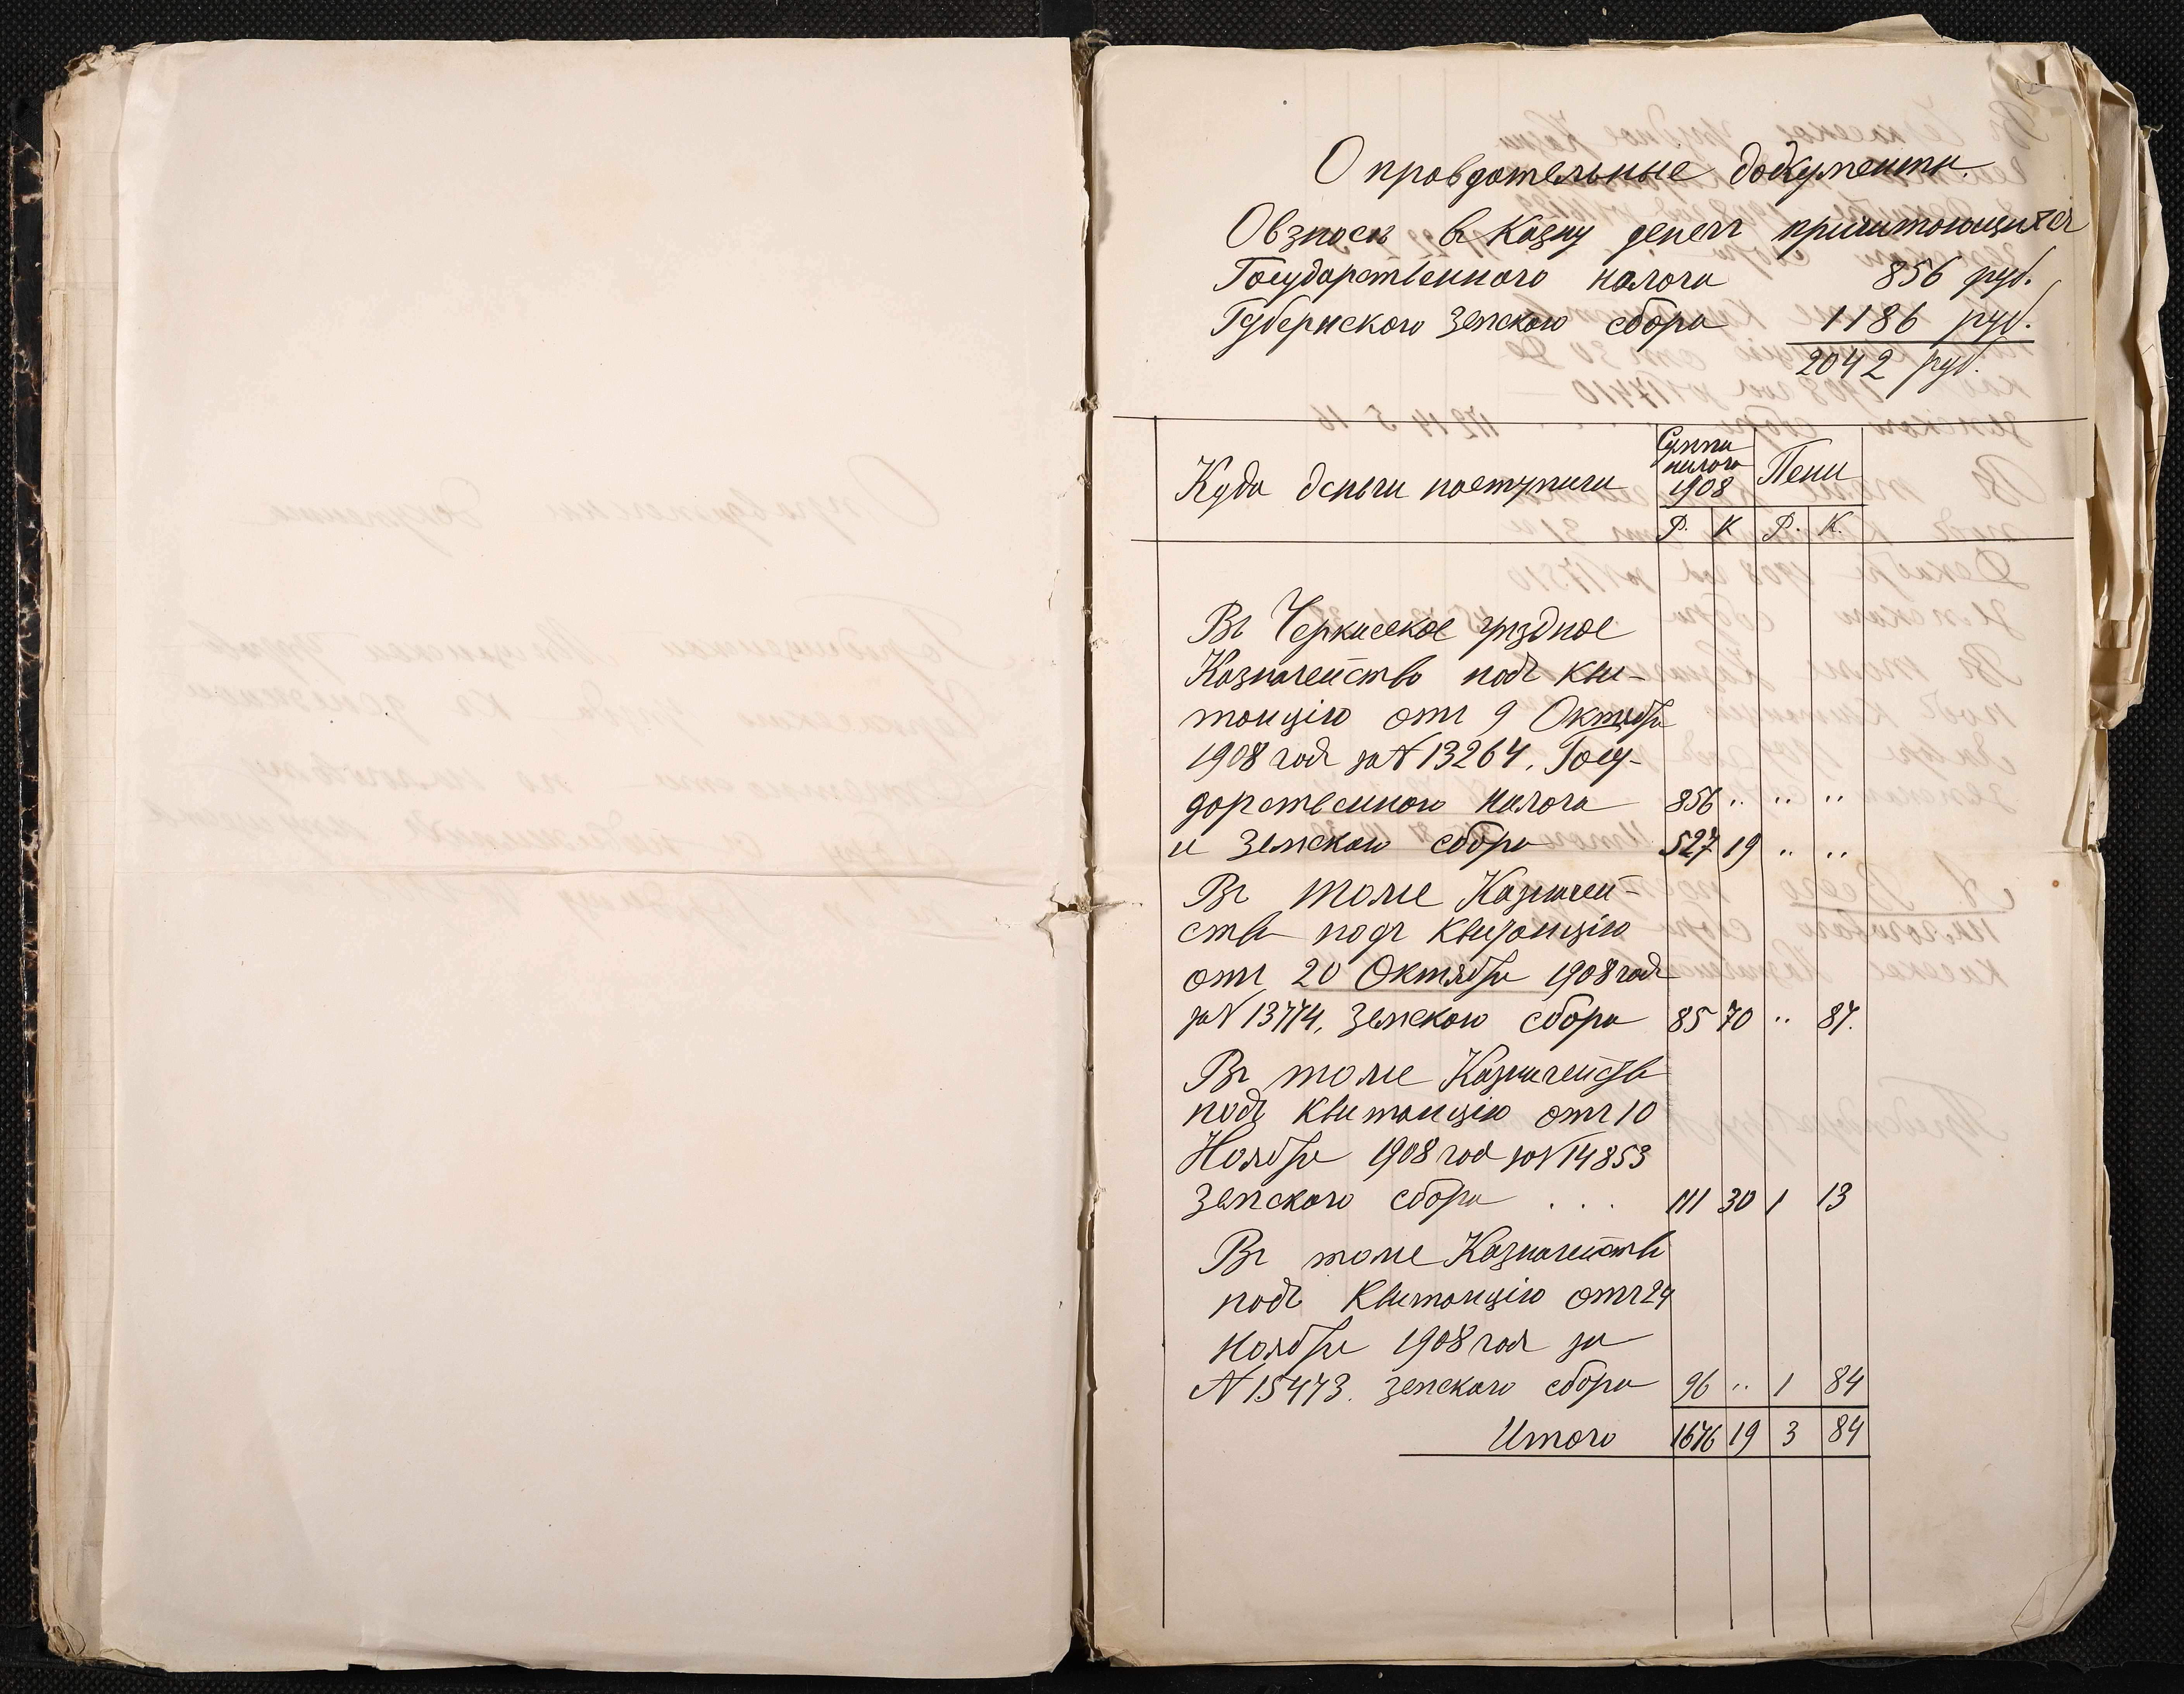 Оправдательные документы.
О взносѣ въ казну денегъ причитающихся
Государственнаго налога 856 руб.
Губернскаго Земскаго сбора 1186 руб.
2042 руб.
Куда деньги поступили
Сумма налога 1908
Пени
Р. К Р. К.
Въ Черкасское уѣздное
Казначейство подъ кви-
танцію отъ 9 Октября
1908 года за № 13264, Госу-
дарственного налога 856 " " "
и Земскаго сбора 527 19 " "
Въ тоже Казначей-
ство подъ Квитанцію
отъ 20 Октября 1908 года
за № 13774, Земскаго сбора 85 70 " 87.
Въ тоже Казначейство
подъ Квитанцію отъ 10
Ноября 1908 года за № 14853
Земскаго сбора . . . 111 30 1 13
Въ тоже Казначейство
подъ Квитанцію отъ 24
Ноября 1908 года за
№ 15473. Земскаго сбора 96 " 1 84
Итого 1676 19 3 84